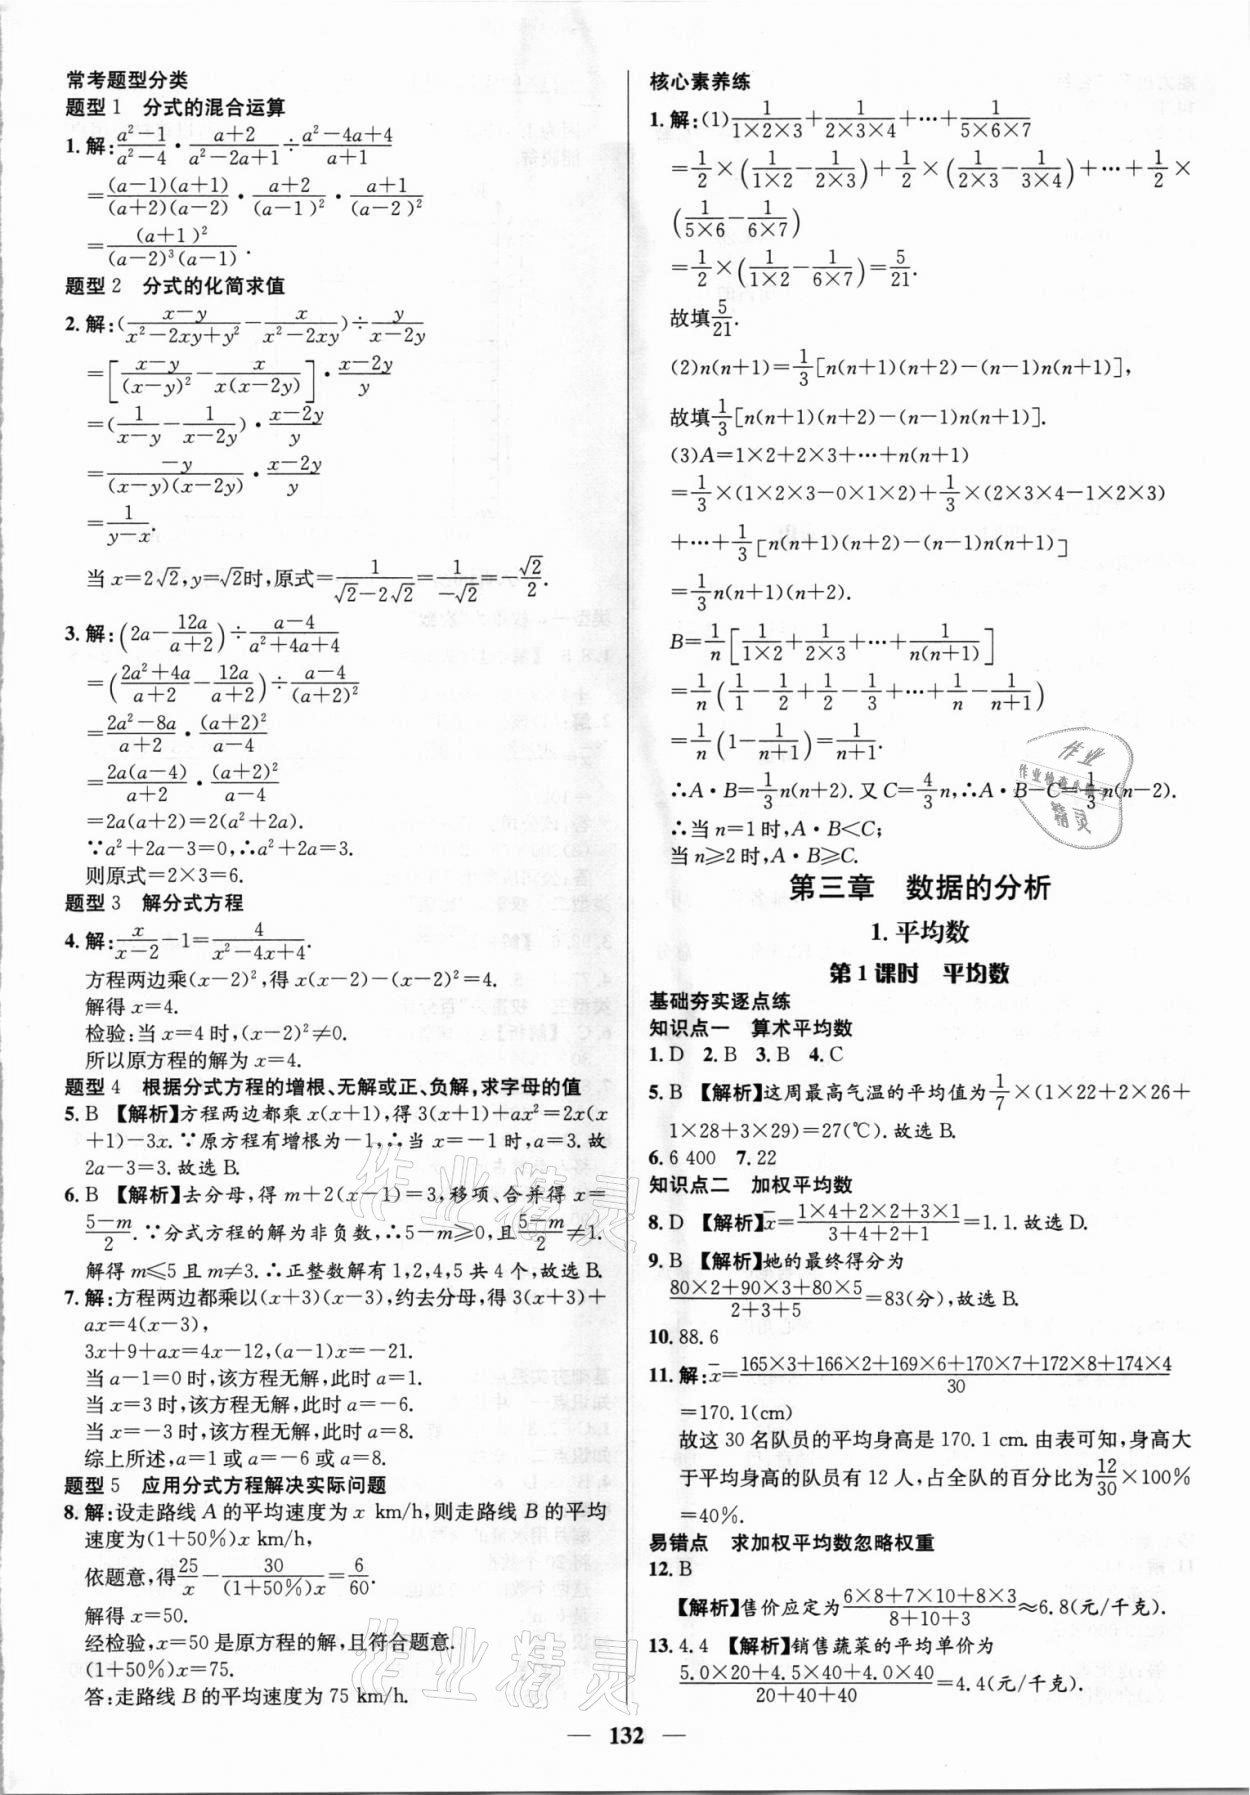 常考题型分类
题型 1　分式的混合运算
1. 解:\frac{a²-1}{a²-4}·\frac{a+2}{a²-2a+1}÷\frac{a²-4a+4}{a+1}
=\frac{(a-1)(a+1)}{(a+2)(a-2)}·\frac{a+2}{(a-1)²}·\frac{a+1}{(a-2)²}
=\frac{(a+1)²}{(a-2)³(a-1)}.
题型 2　分式的化简求值
2. 解:(\frac{x-y}{x²-2xy+y²}-\frac{x}{x²-2xy})÷\frac{y}{x-2y}
=[\frac{x-y}{(x-y)²}-\frac{x}{x(x-2y)}]·\frac{x-2y}{y}
=(\frac{1}{x-y}-\frac{1}{x-2y})·\frac{x-2y}{y}
=\frac{-y}{(x-y)(x-2y)}·\frac{x-2y}{y}
=\frac{1}{y-x}.
当 x=2√2,y=√2时,原式=\frac{1}{√2-2√2}=\frac{1}{-√2}=-\frac{√2}{2}.
3. 解:(2a-\frac{12a}{a+2})÷\frac{a-4}{a²+4a+4}
=(\frac{2a²+4a}{a+2}-\frac{12a}{a+2})÷\frac{a-4}{(a+2)²}
=\frac{2a²-8a}{a+2}·\frac{(a+2)²}{a-4}
=\frac{2a(a-4)}{a+2}·\frac{(a+2)²}{a-4}
=2a(a+2)=2(a²+2a).
∵a²+2a-3=0,∴a²+2a=3.
则原式=2×3=6.
题型 3　解分式方程
4. 解:\frac{x}{x-2}-1=\frac{4}{x²-4x+4}.
方程两边乘(x-2)²,得 x(x-2)-(x-2)²=4.
解得 x=4.
检验:当 x=4 时,(x-2)²≠0.
所以原方程的解为 x=4.
题型 4　根据分式方程的增根、无解或正、负解,求字母的值
5. B 【解析】方程两边都乘 x(x+1),得 3(x+1)+ax²=2x(x
+1)-3x.∵原方程有增根为-1,∴当 x=-1 时,a=3.故
2a-3=3.故选 B.
6. B 【解析】去分母,得 m+2(x-1)=3,移项、合并得 x=
\frac{5-m}{2}.∵分式方程的解为非负数,∴5-m≥0,且\frac{5-m}{2}≠1.
解得 m≤5 且 m≠3.∴正整数解有 1,2,4,5 共 4 个,故选 B.
7. 解:方程两边都乘以(x+3)(x-3),约去分母,得 3(x+3)+
ax=4(x-3),
3x+9+ax=4x-12,(a-1)x=-21.
当 a-1=0 时,该方程无解,此时 a=1.
当 x=3 时,该方程无解,此时 a=-6.
当 x=-3 时,该方程无解,此时 a=8.
综上所述,a=1 或 a=-6 或 a=8.
题型 5　应用分式方程解决实际问题
8. 解:设走路线 A 的平均速度为 x km/h,则走路线 B 的平均
速度为(1+50%)x km/h,
依题意,得\frac{25}{x}-\frac{30}{(1+50%)x}=\frac{6}{60}.
解得 x=50.
经检验,x=50 是原方程的解,且符合题意.
(1+50%)x=75.
答:走路线 B 的平均速度为 75 km/h.
核心素养练
1. 解:(1)\frac{1}{1×2×3}+\frac{1}{2×3×4}+…+\frac{1}{5×6×7}
=\frac{1}{2}×(\frac{1}{1×2}-\frac{1}{2×3})+\frac{1}{2}×(\frac{1}{2×3}-\frac{1}{3×4})+…+\frac{1}{2}×
(\frac{1}{5×6}-\frac{1}{6×7})
=\frac{1}{2}×(\frac{1}{1×2}-\frac{1}{6×7})=\frac{5}{21}.
故填\frac{5}{21}.
(2)n(n+1)=\frac{1}{3}[n(n+1)(n+2)-(n-1)n(n+1)],
故填\frac{1}{3}[n(n+1)(n+2)-(n-1)n(n+1)].
(3)A=1×2+2×3+…+n(n+1)
=\frac{1}{3}×(1×2×3-0×1×2)+\frac{1}{3}×(2×3×4-1×2×3)
+…+\frac{1}{3}[n(n+1)(n+2)-(n-1)n(n+1)]
=\frac{1}{3}n(n+1)(n+2).
B=\frac{1}{n}[\frac{1}{1×2}+\frac{1}{2×3}+…+\frac{1}{n(n+1)}]
=\frac{1}{n}(\frac{1}{1}-\frac{1}{2}+\frac{1}{2}-\frac{1}{3}+…+\frac{1}{n}-\frac{1}{n+1})
=\frac{1}{n}(1-\frac{1}{n+1})=\frac{1}{n+1}.
∴A·B=\frac{1}{3}n(n+2).又 C=\frac{4}{3}n,∴A·B-C=\frac{1}{3}n(n-2).
∴当 n=1 时,A·B<C;
当 n≥2 时,A·B≥C.
第三章　数据的分析
1. 平均数
第 1 课时　平均数
基础夯实逐点练
知识点一　算术平均数
1. D 2. B 3. B 4. C
5. B 【解析】这周最高气温的平均值为\frac{1}{7}×(1×22+2×26+
1×28+3×29)=27(℃).故选 B.
6. 6 400 7. 22
知识点二　加权平均数
8. D 【解析】x̄=\frac{1×4+2×2+3×1}{3+4+2+1}=1.1.故选 D.
9. B 【解析】她的最终得分为
\frac{80×2+90×3+80×5}{2+3+5}=83(分),故选 B.
10. 88.6
11. 解:x̄=\frac{165×3+166×2+169×6+170×7+172×8+174×4}{30}
=170.1(cm)
故这 30 名队员的平均身高是 170.1 cm.由表可知,身高大
于平均身高的队员有 12 人,占全队的百分比为\frac{12}{30}×100%
=40%.
易错点　求加权平均数忽略权重
12. B
【解析】售价应定为\frac{6×8+7×10+8×3}{8+10+3}≈6.8(元/千克).
13. 4.4 【解析】销售蔬菜的平均单价为
\frac{5.0×20+4.5×40+4.0×40}{20+40+40}=4.4(元/千克).
— 132 —
作业精灵
作业精灵
作业
精灵